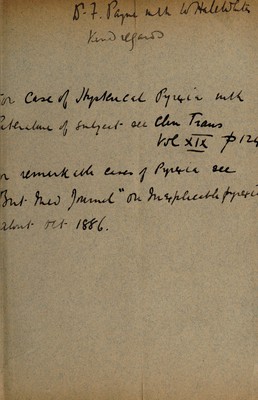 Dr. F. Payne with W Hale White
Kind regards
For Case of Hysterical Pyrexia with
Literature of subject see Clin Trans
Vol XIX p 124
For remarkable cases of Pyrexia see
"Brit Med Journal" on Inexplicable pyrexia
about Oct 1886.